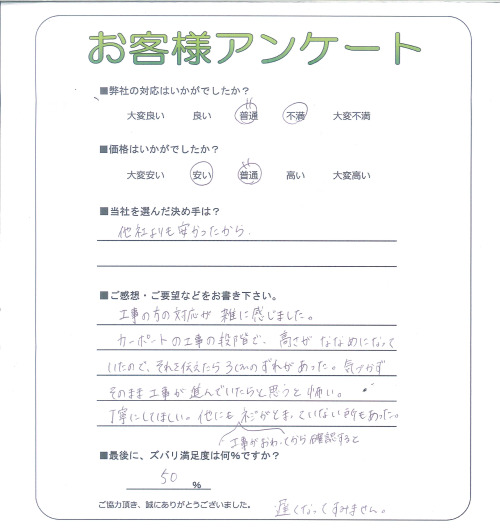 お客様アンケート
■弊社の対応はいかがでしたか？
大変良い 良い 普通 不満 大変不満
■価格はいかがでしたか？
大変安い 安い 普通 高い 大変高い
■当社を選んだ決め手は？
他社よりも安かったから.
■ご感想・ご要望などをお書き下さい。
工事の方の対応が 雑に感じました。
カーポートの工事の段階で、高さが ななめになって
いたので、それを伝えたら3cmのずれがあった。気づかず
そのまま工事が進んでいたらと思うと怖い。
丁寧にしてほしい。他にもネジがとまっていない所もあった。
工事がおわってから確認すると
■最後に、ズバリ満足度は何%ですか？
50 %
ご協力頂き、誠にありがとうございました。
遅くなってすみません。